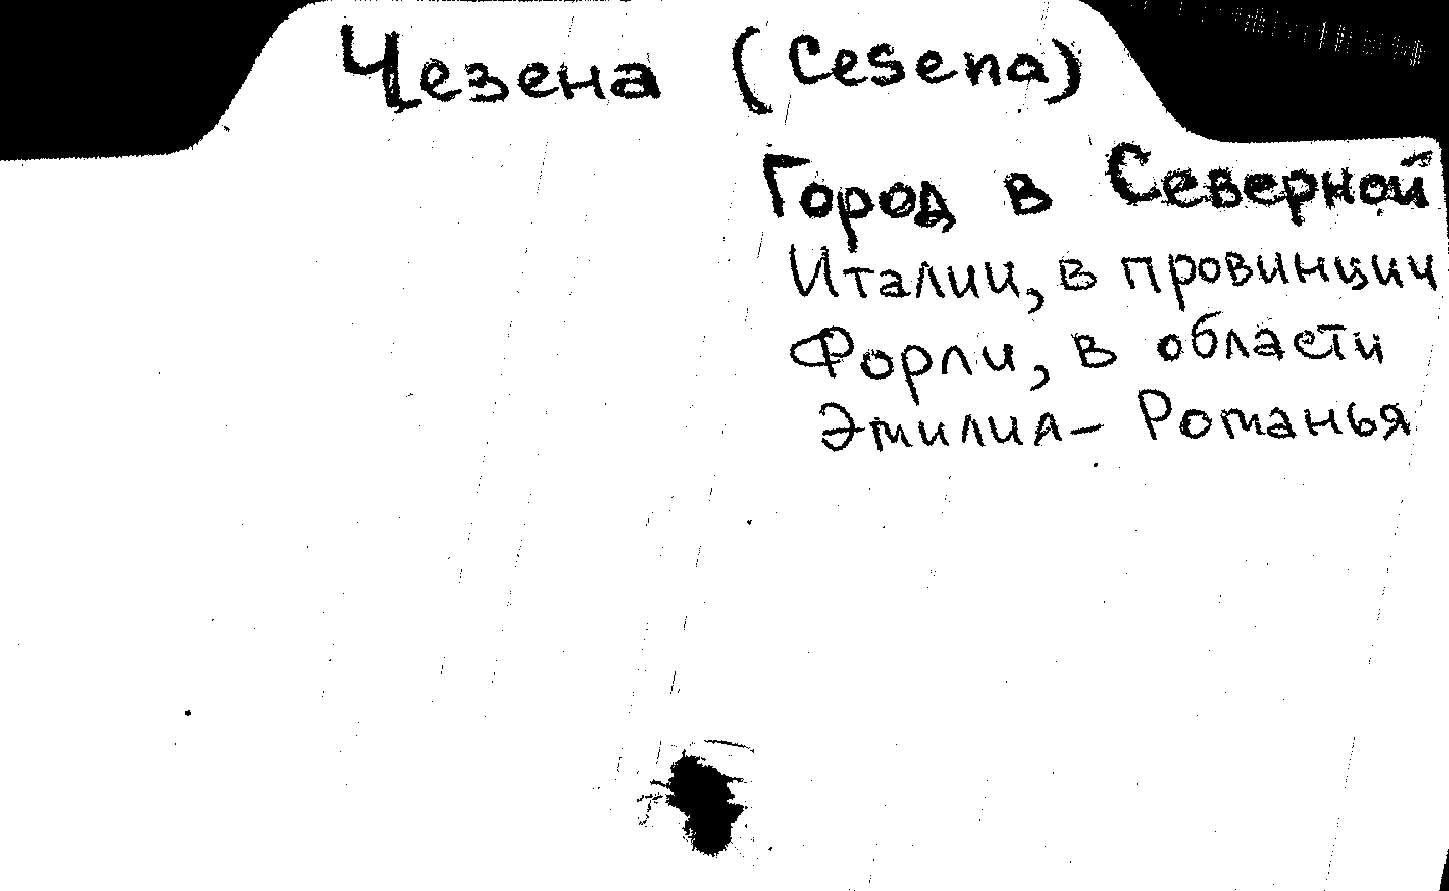 Чезена (Cesena)
Город в Северной
Италии, в провинции
Форли, в области
Эмилиа - Романья